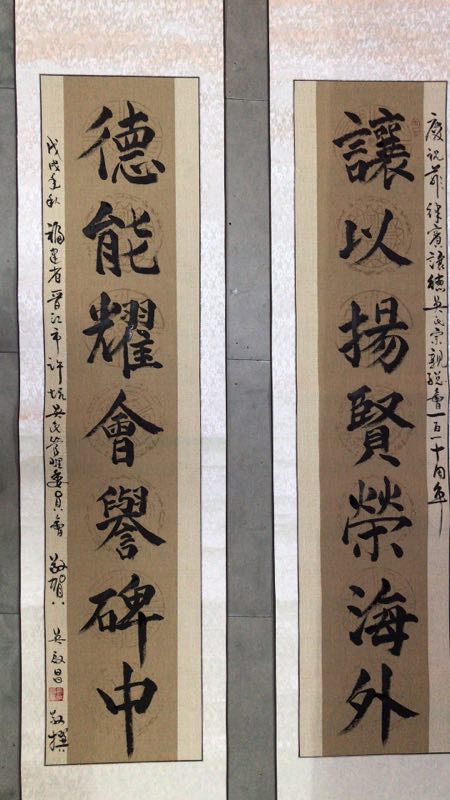 慶祝菲律賓讓德吳氏宗親總會一百一十周年
讓以揚賢榮海外
德能耀會譽碑中
戊戌年秋 福建省晉江市許坑吳氏管理委員會 敬賀
吳啟昌 敬撰